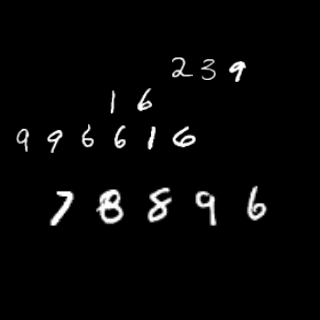 239
16
996616
78896